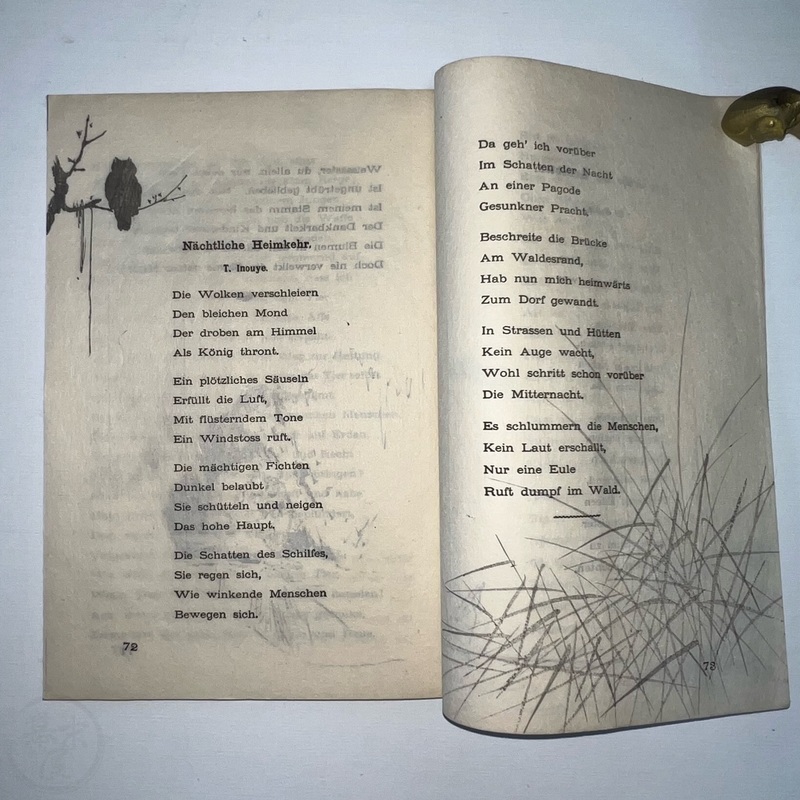 Nächtliche Heimkehr.
T. Inouye.
Die Wolken verschleiern
Den bleichen Mond
Der droben am Himmel
Als König thront.
Ein plötzliches Säuseln
Erfüllt die Luft,
Mit flüsterndem Tone
Ein Windstoss ruft.
Die mächtigen Fichten
Dunkel belaubt
Sie schütteln und neigen
Das hohe Haupt.
Die Schatten des Schilfes,
Sie regen sich,
Wie winkende Menschen
Bewegen sich.
72
Da geh' ich vorüber
Im Schatten der Nacht
An einer Pagode
Gesunkner Pracht.
Beschreite die Brücke
Am Waldesrand,
Hab nun mich heimwärts
Zum Dorf gewandt.
In Strassen und Hütten
Kein Auge wacht,
Wohl schritt schon vorüber
Die Mitternacht.
Es schlummern die Menschen,
Kein Laut erschallt,
Nur eine Eule
Ruft dumpf im Wald.
73